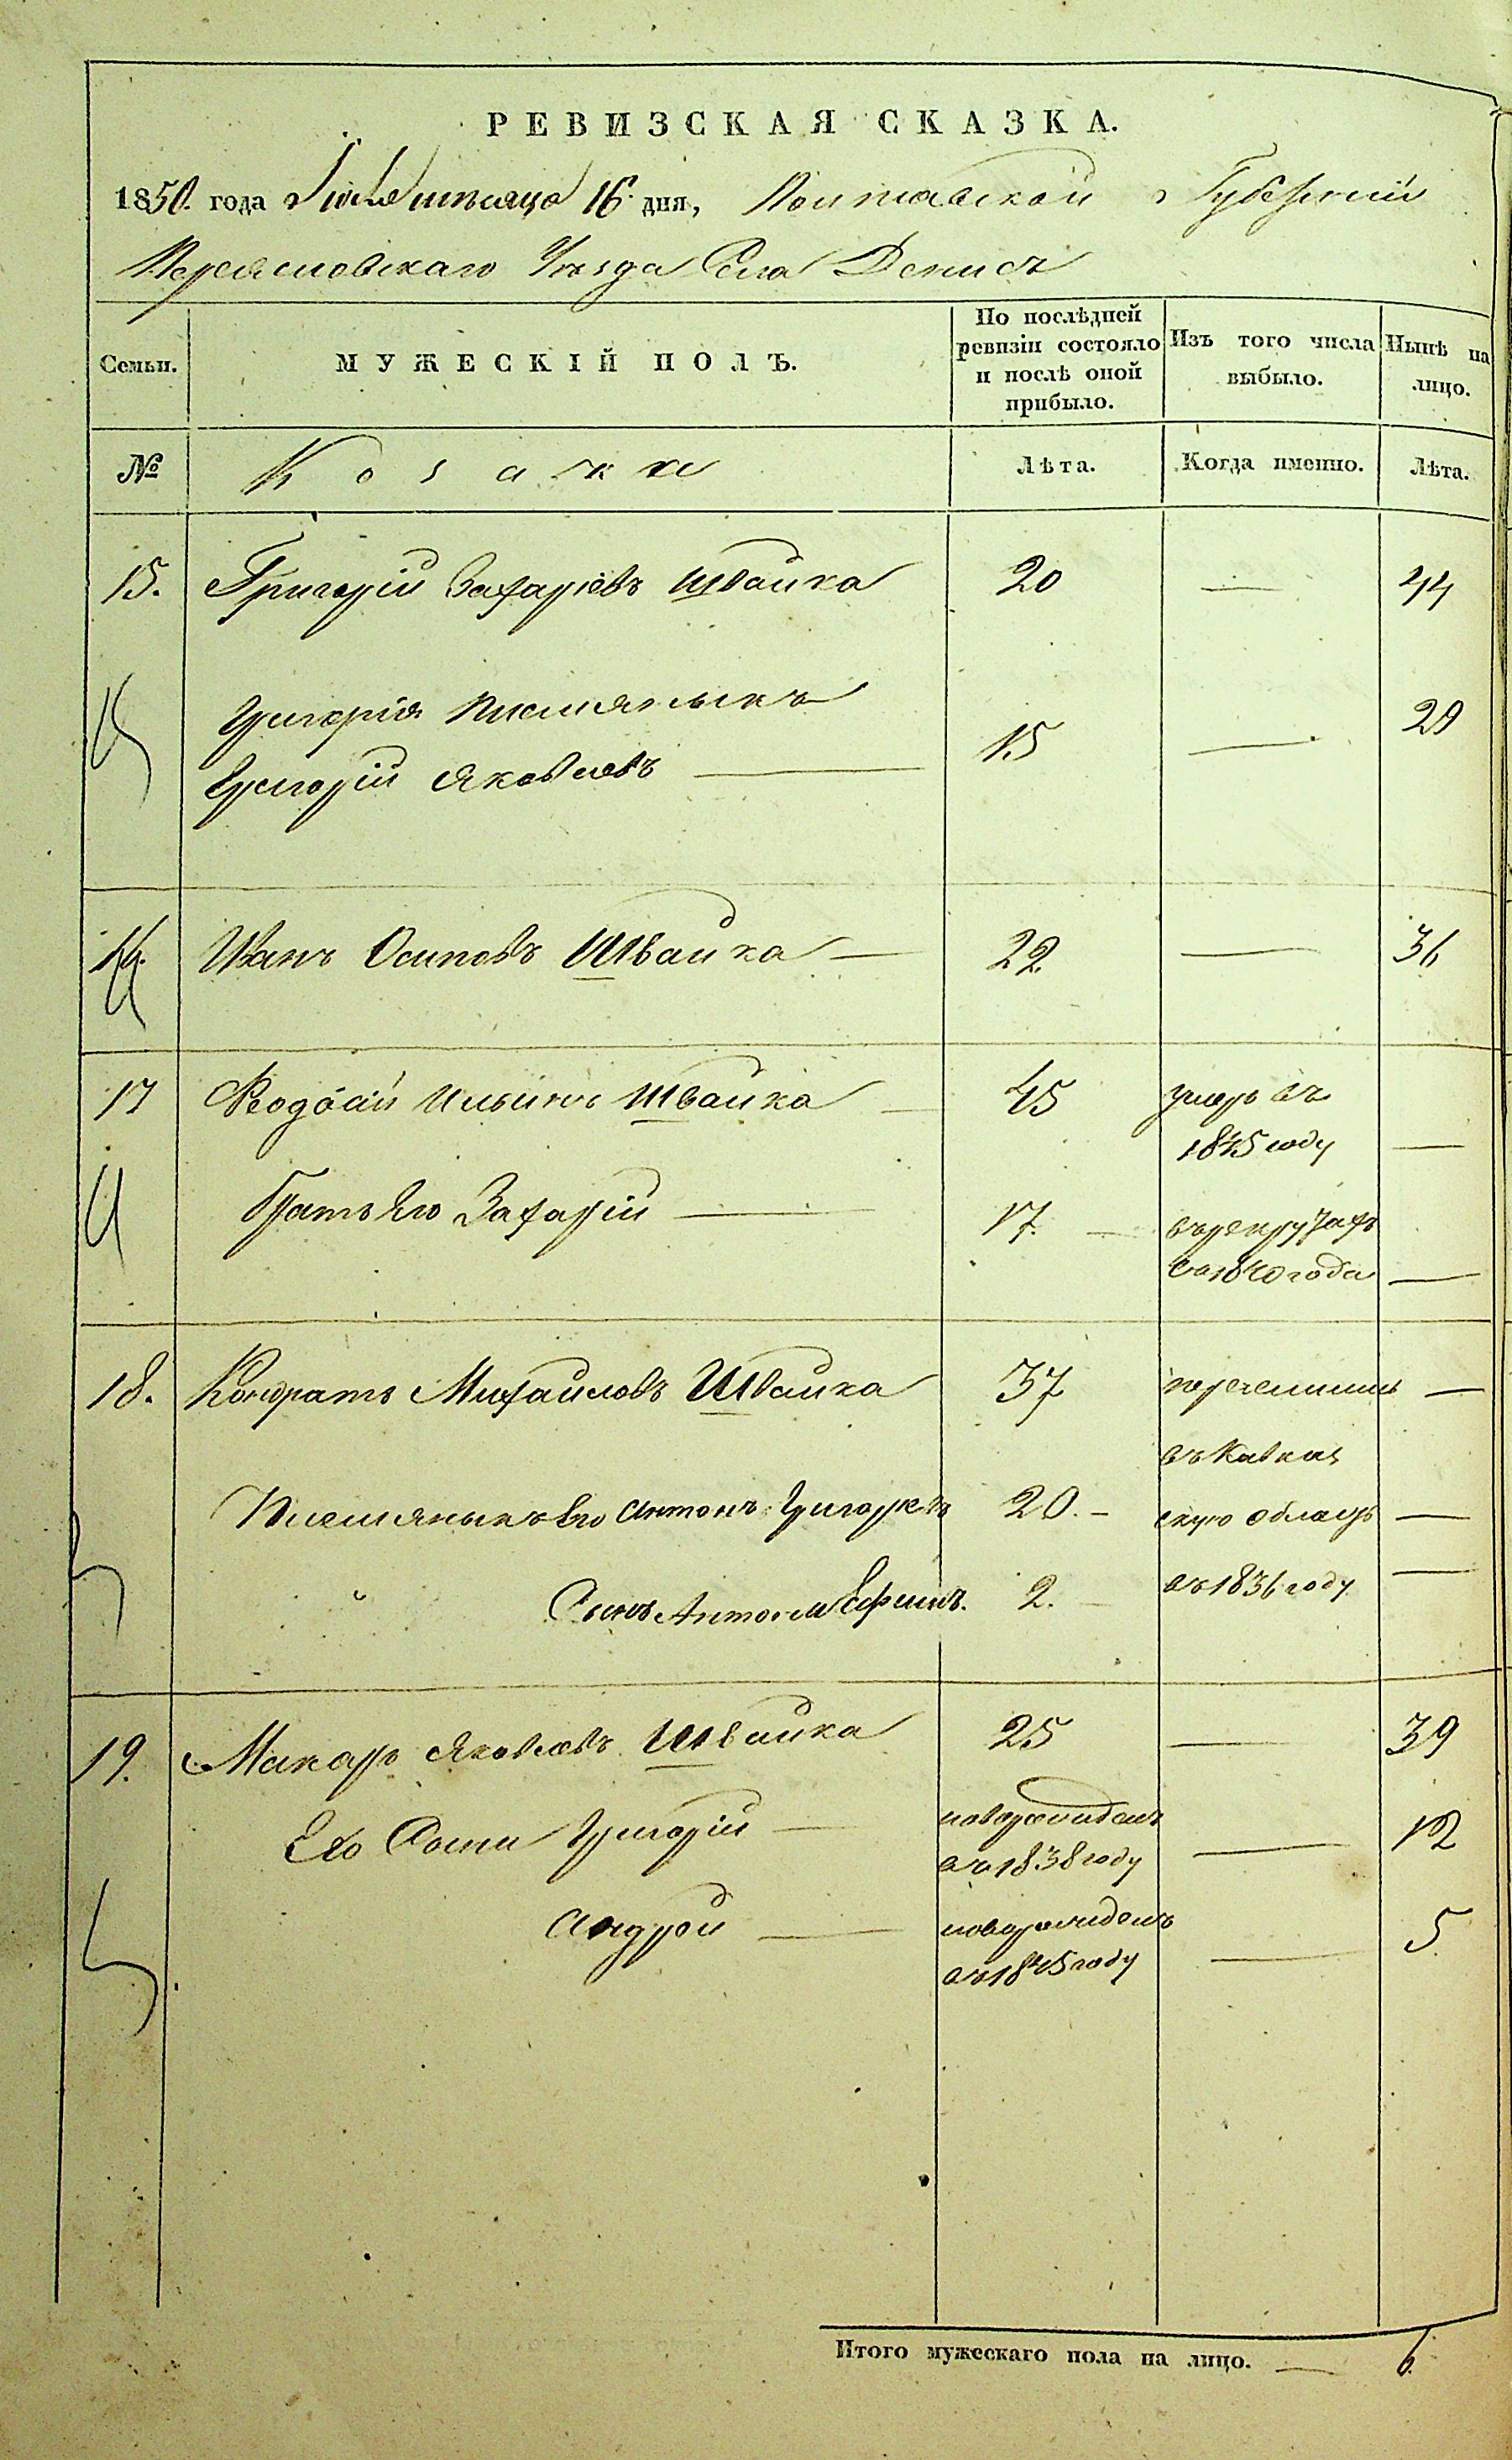 РЕВИЗСКАЯ СКАЗКА.
1850. года Іюля мѣсяца 16. дня, Полтавской Губерніи
Переясловскаго Уѣзда Села Денисъ
Семьи.
МУЖЕСКІЙ ПОЛЪ.
По послѣдней
ревизіи состояло
и послѣ оной
прибыло.
Изъ того числа
выбыло.
Нынѣ на
лицо.
№
Козаки
Лѣта.
Когда именно.
Лѣта.
15. Григорій Захаріевъ Швайка 20 — 44
Григорія племянникъ
Григорій Яковлевъ — 15 — 29
16. Иванъ Осиповъ Швайка — 22 — 36
17 Ильинъ Швайка — 45 умеръ въ
1845 году —
братъ Его Захарій — 17. — въ рекрутахъ
съ 1840 года —
18. Кондратъ Михайловъ Швайка 37 перечислены —
въ Кавказ
Племянникъ Его Антонъ Григорьевъ 20. — скую область —
Сынъ Антона Ефимъ. 2. — въ 1836 году —
19. Макаръ Яковлевъ Швайка 25 — 39
Его Сыны Григорій — новорожденъ
въ 1838 году — 12
Андрей — новорожденъ
въ 1845 году — 5
Итого мужескаго пола на лицо. — 6.